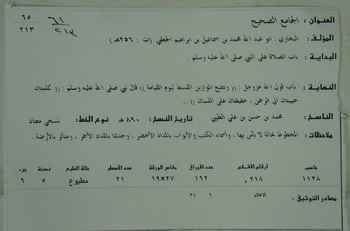 ٦٥
٢١٣
٦١
٢١٣
العنوان : الجامع الصحيح
المؤلف : البخاري : ابو عبد الله محمد بن اسماعيل بن ابراهيم الجعفي (ت : ٢٥٦هـ)
البداية : باب الصلاة على النبي صلى الله عليه وسلم .
النهاية : باب قول الله عز وجل : (( ونضع الموازين القسط ليوم القيامة )) قال نبي صلى الله عليه وسلم : (( كلمتان
حبيبتان إلى الرحمن ، خفيفتان على اللسان ... ))
الناسخ : محمد بن حسن بن علي الطيبي تاريخ النسخ : ٨٩٠هـ نوع الخط : نسخي معتاد
ملاحظات : المخطوط بحالة لا بأس بها ، واسماء الكتب والابواب بالمداد الأخضر ، وحدثنا بالمداد الأحمر ، ومتأثر بالأرضة .
حاسب أرقام الأفلام عدد الأوراق مقاس الورقة عدد الأسطر حالة الطبع نسخة جزء
١١٢٨ ٢١٨ ١٦٢ ٢٧×١٩ ٢١ مطبوع ٥ ٦
مصادر التوثيق : الاعلام ٦ ٣٤